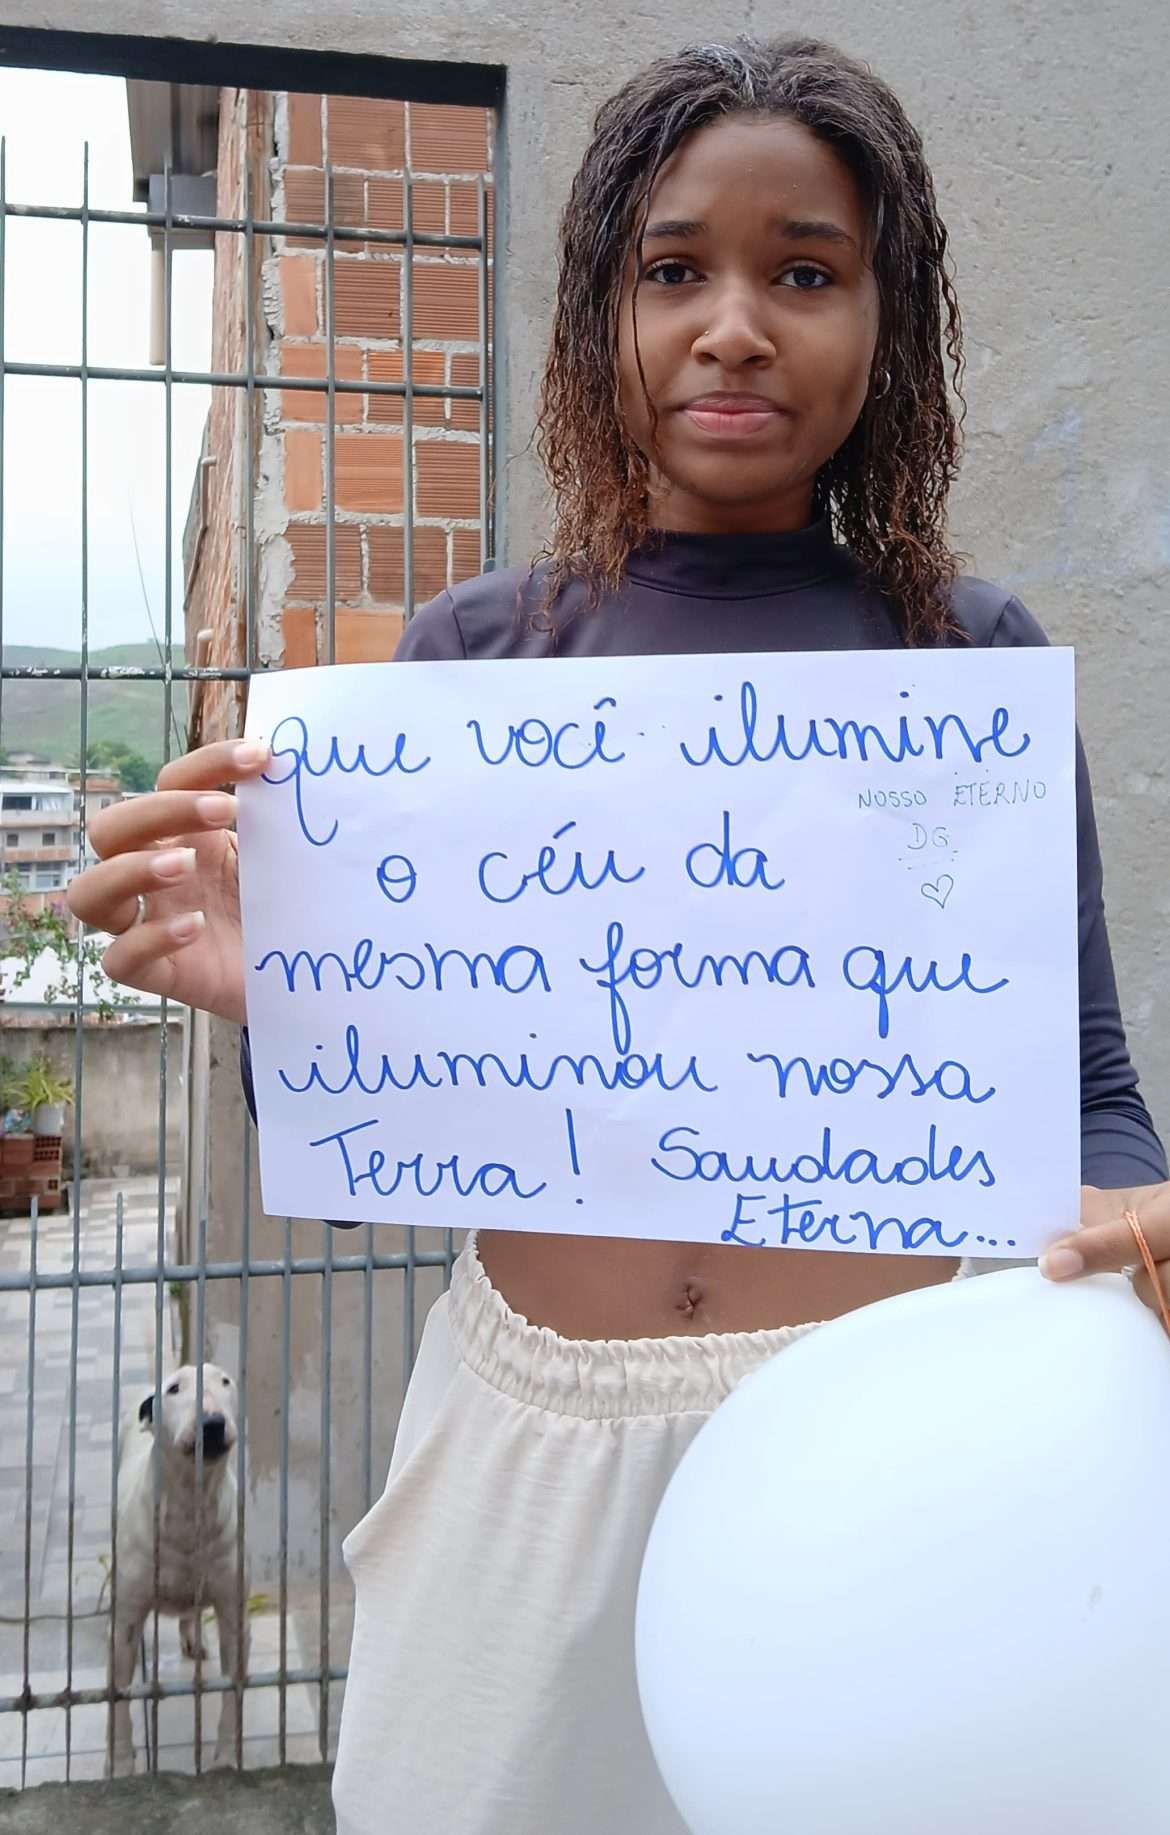 que você ilumine
NOSSO ETERNO
DG
o céu da
mesma forma que
iluminou nossa
Terra! Saudades
Eterna...